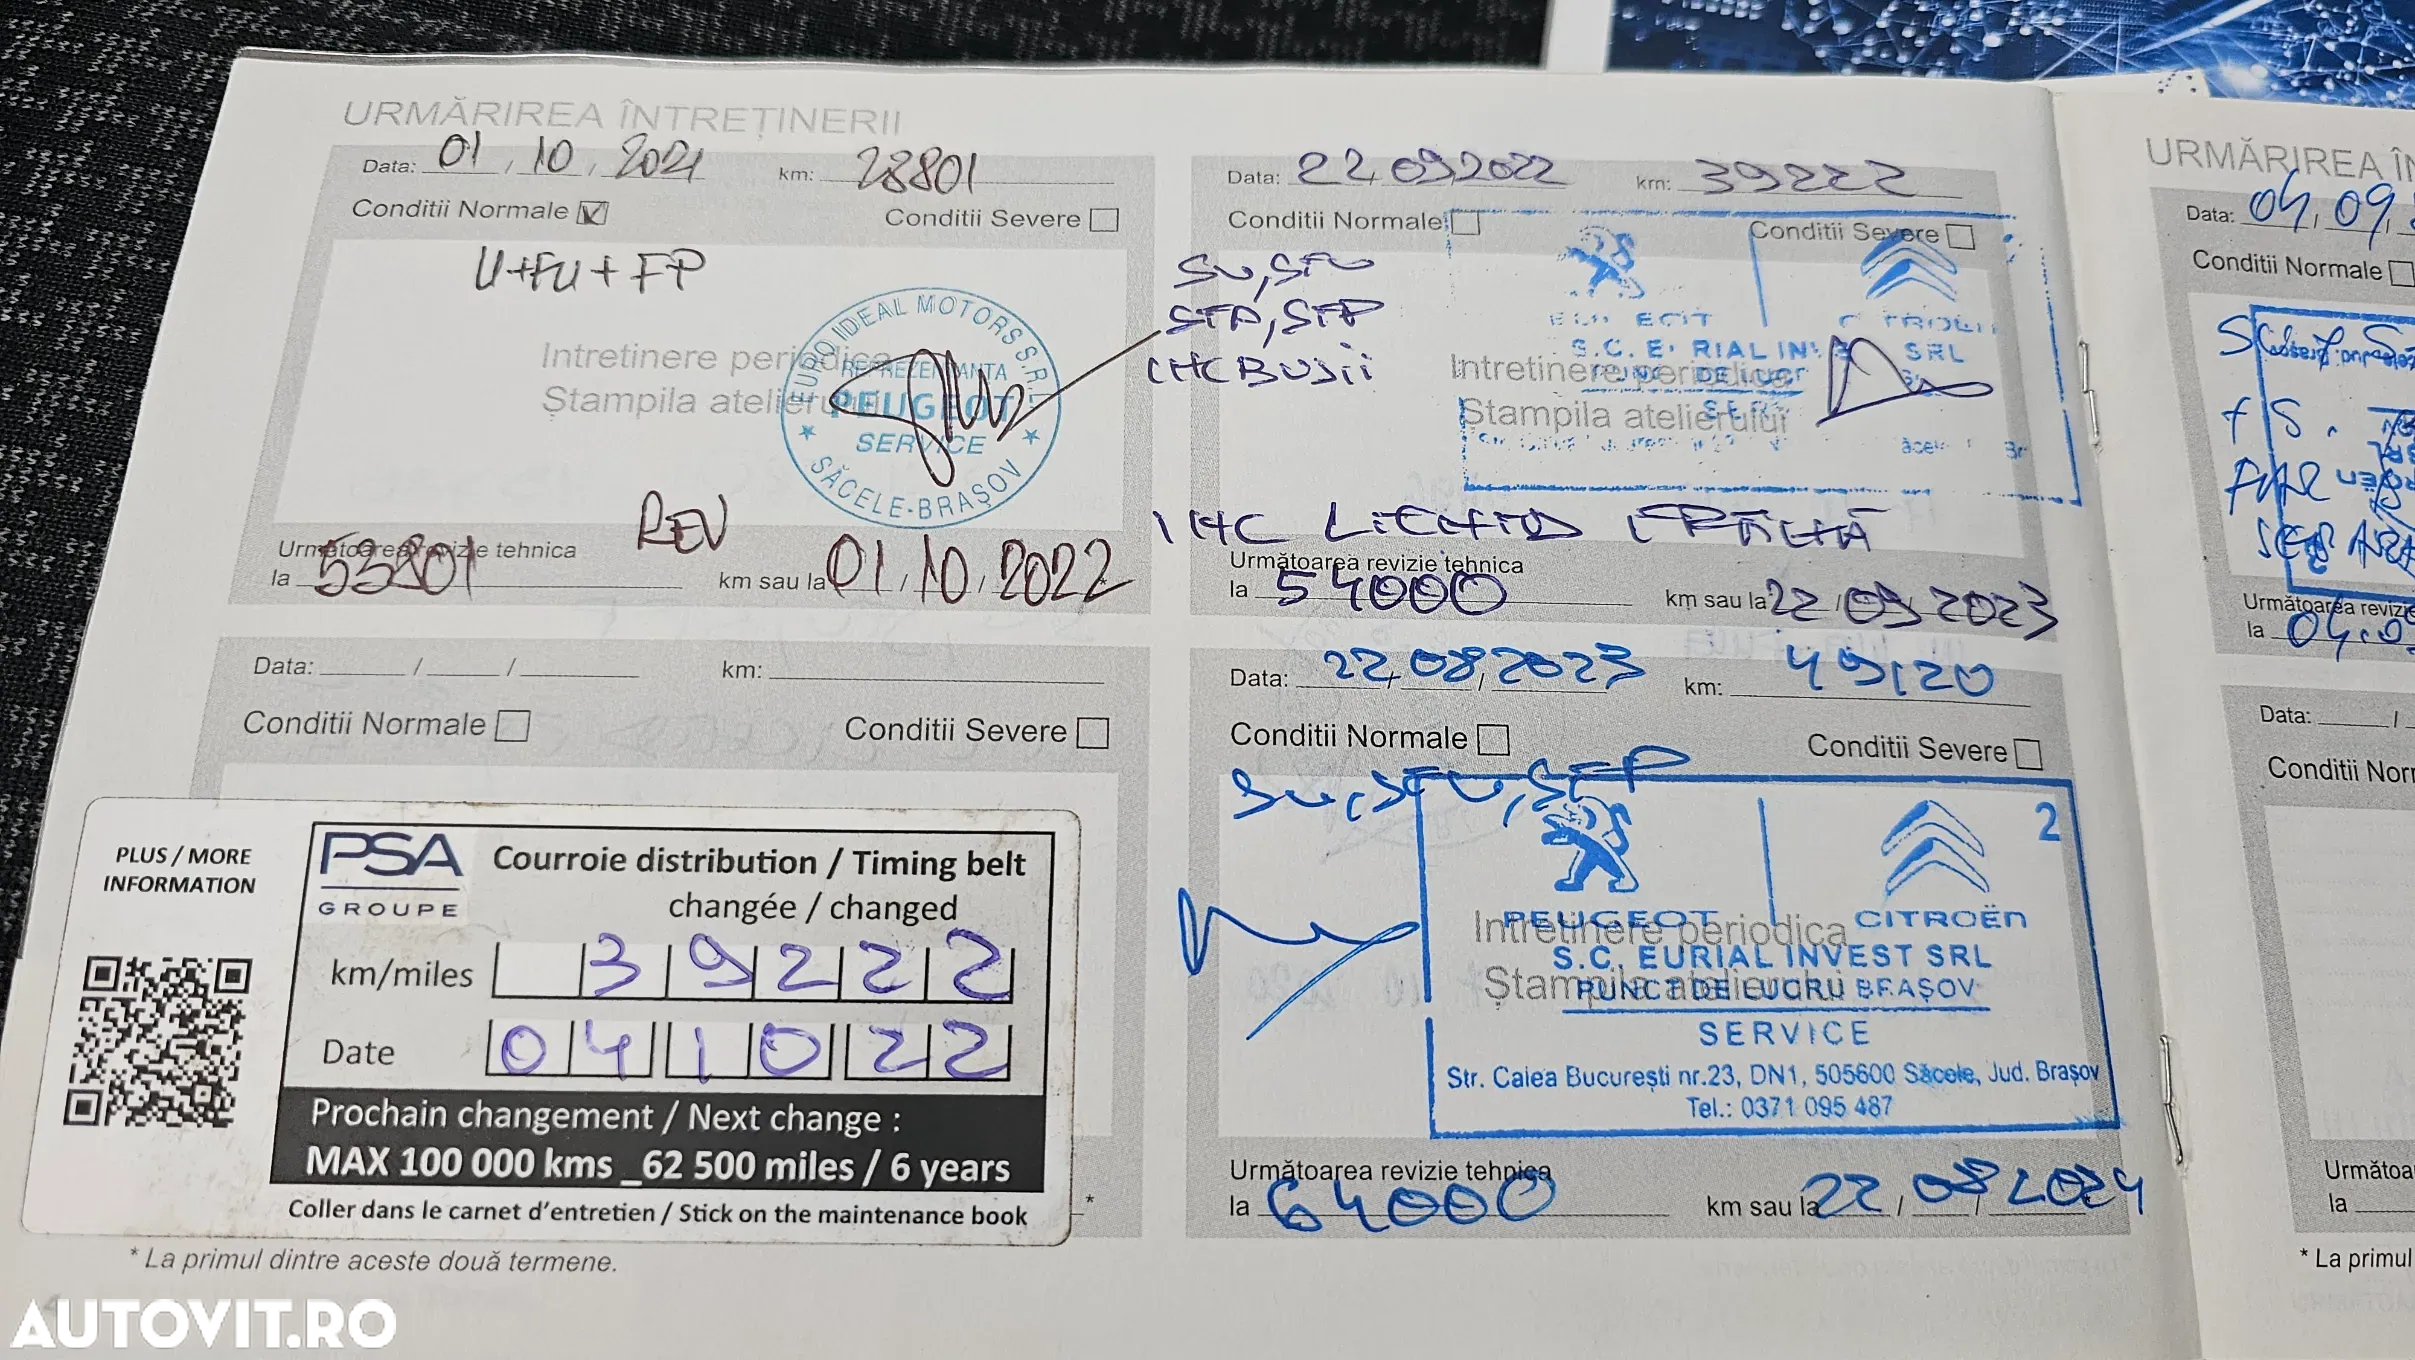 URMĂRIREA ÎNTREȚINERII
Data: 01, 10, 2021 km: 28801
Conditii Normale Conditii Severe
U+FU+FP
Intretinere periodica
Ștampila atelierului
EURO IDEAL MOTORS S.R.L.
REPREZENTANTA
PEUGEOT
SERVICE
SĂCELE-BRAȘOV
REV
Următoarea revizie tehnica
la 53801 km sau la 01, 10, 2022 *
Data: / / km:
Conditii Normale Conditii Severe
PLUS / MORE
INFORMATION
PSA
GROUPE
Courroie distribution / Timing belt
changée / changed
km/miles 39222
Date 04 10 22
Prochain changement / Next change :
MAX 100 000 kms _62 500 miles / 6 years
Coller dans le carnet d'entretien / Stick on the maintenance book
*
* La primul dintre aceste două termene.
Data: 22,09,2022 km: 39222
Conditii Normale Conditii Severe
SU, SFU
SFA, SFP
Intretinere periodica
Ștampila atelierului
SRL
Următoarea revizie tehnica
la 54000 km sau la 22/09 2023
Data: 22,08,2023 km: 49120
Conditii Normale Conditii Severe
SU, SFU, SFP
2
PEUGEOT CITROËN
Intretinere periodica
S.C. EURIAL INVEST SRL
Ștampila atelierului
PUNCT DE LUCRU BRAȘOV
SERVICE
Str. Calea București nr.23, DN1, 505600 Săcele, Jud. Brașov
Tel.: 0371 095 487
Următoarea revizie tehnica
la 64000 km sau la 22/08/2024
URMĂRIREA Î
Data: 04, 09,
Conditii Normale
Următoarea
la 04.
Data: /
Conditii Nor
Următoa
la
* La primul
AUTOVIT.RO